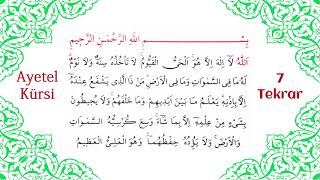 بِسْمِ اللّٰهِ الرَّحْمٰنِ الرَّحِيمِ
Ayetel
Kürsi
اَللّٰهُ لَٓا اِلٰهَ اِلَّا هُوَۚ اَلْحَيُّ الْقَيُّومُۚ لَا تَأْخُذُهُ سِنَةٌ وَلَا نَوْمٌۜ
لَهُ مَا فِي السَّمٰوَاتِ وَمَا فِي الْاَرْضِۜ مَنْ ذَا الَّذِي يَشْفَعُ عِنْدَهُٓ
اِلَّا بِاِذْنِهِۜ يَعْلَمُ مَا بَيْنَ اَيْدِيهِمْ وَمَا خَلْفَهُمْۚ وَلَا يُحِيطُونَ
بِشَيْءٍ مِنْ عِلْمِهِٓ اِلَّا بِمَا شَٓاءَۚ وَسِعَ كُرْسِيُّهُ السَّمٰوَاتِ
وَالْاَرْضَۚ وَلَا يَؤُ۫دُهُ حِفْظُهُمَاۚ وَهُوَ الْعَلِيُّ الْعَظِيمُ
7
Tekrar